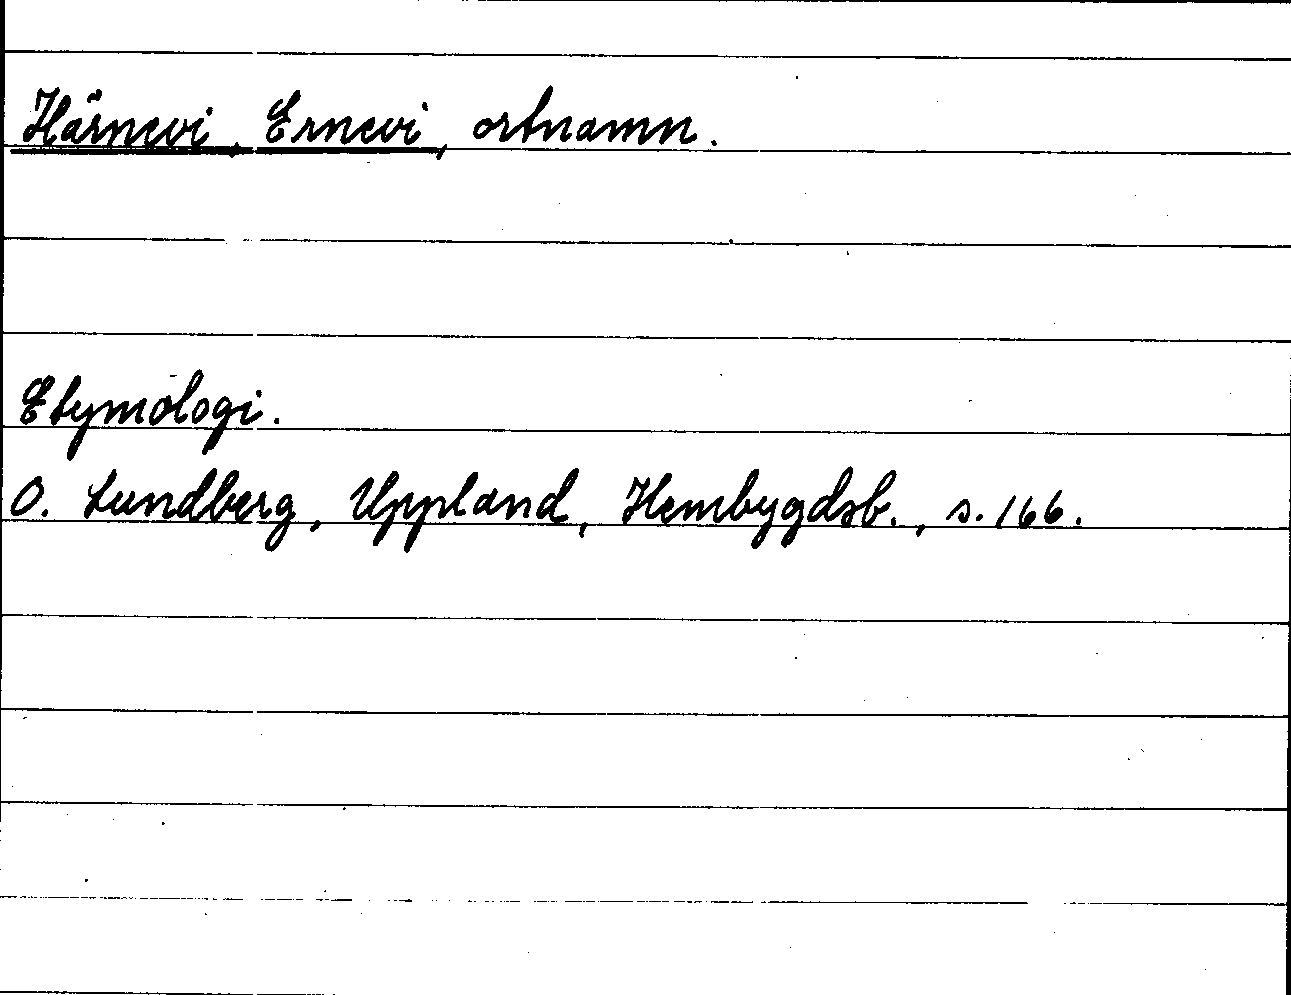 Härnevi, Ernevi, ortnamn.
Etymologi.
O. Lundberg, Uppland, Hembygdsb., s. 166.